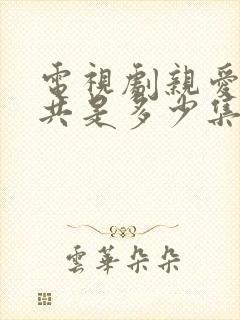 電視劇親愛
共是多少集
雲華朵朵